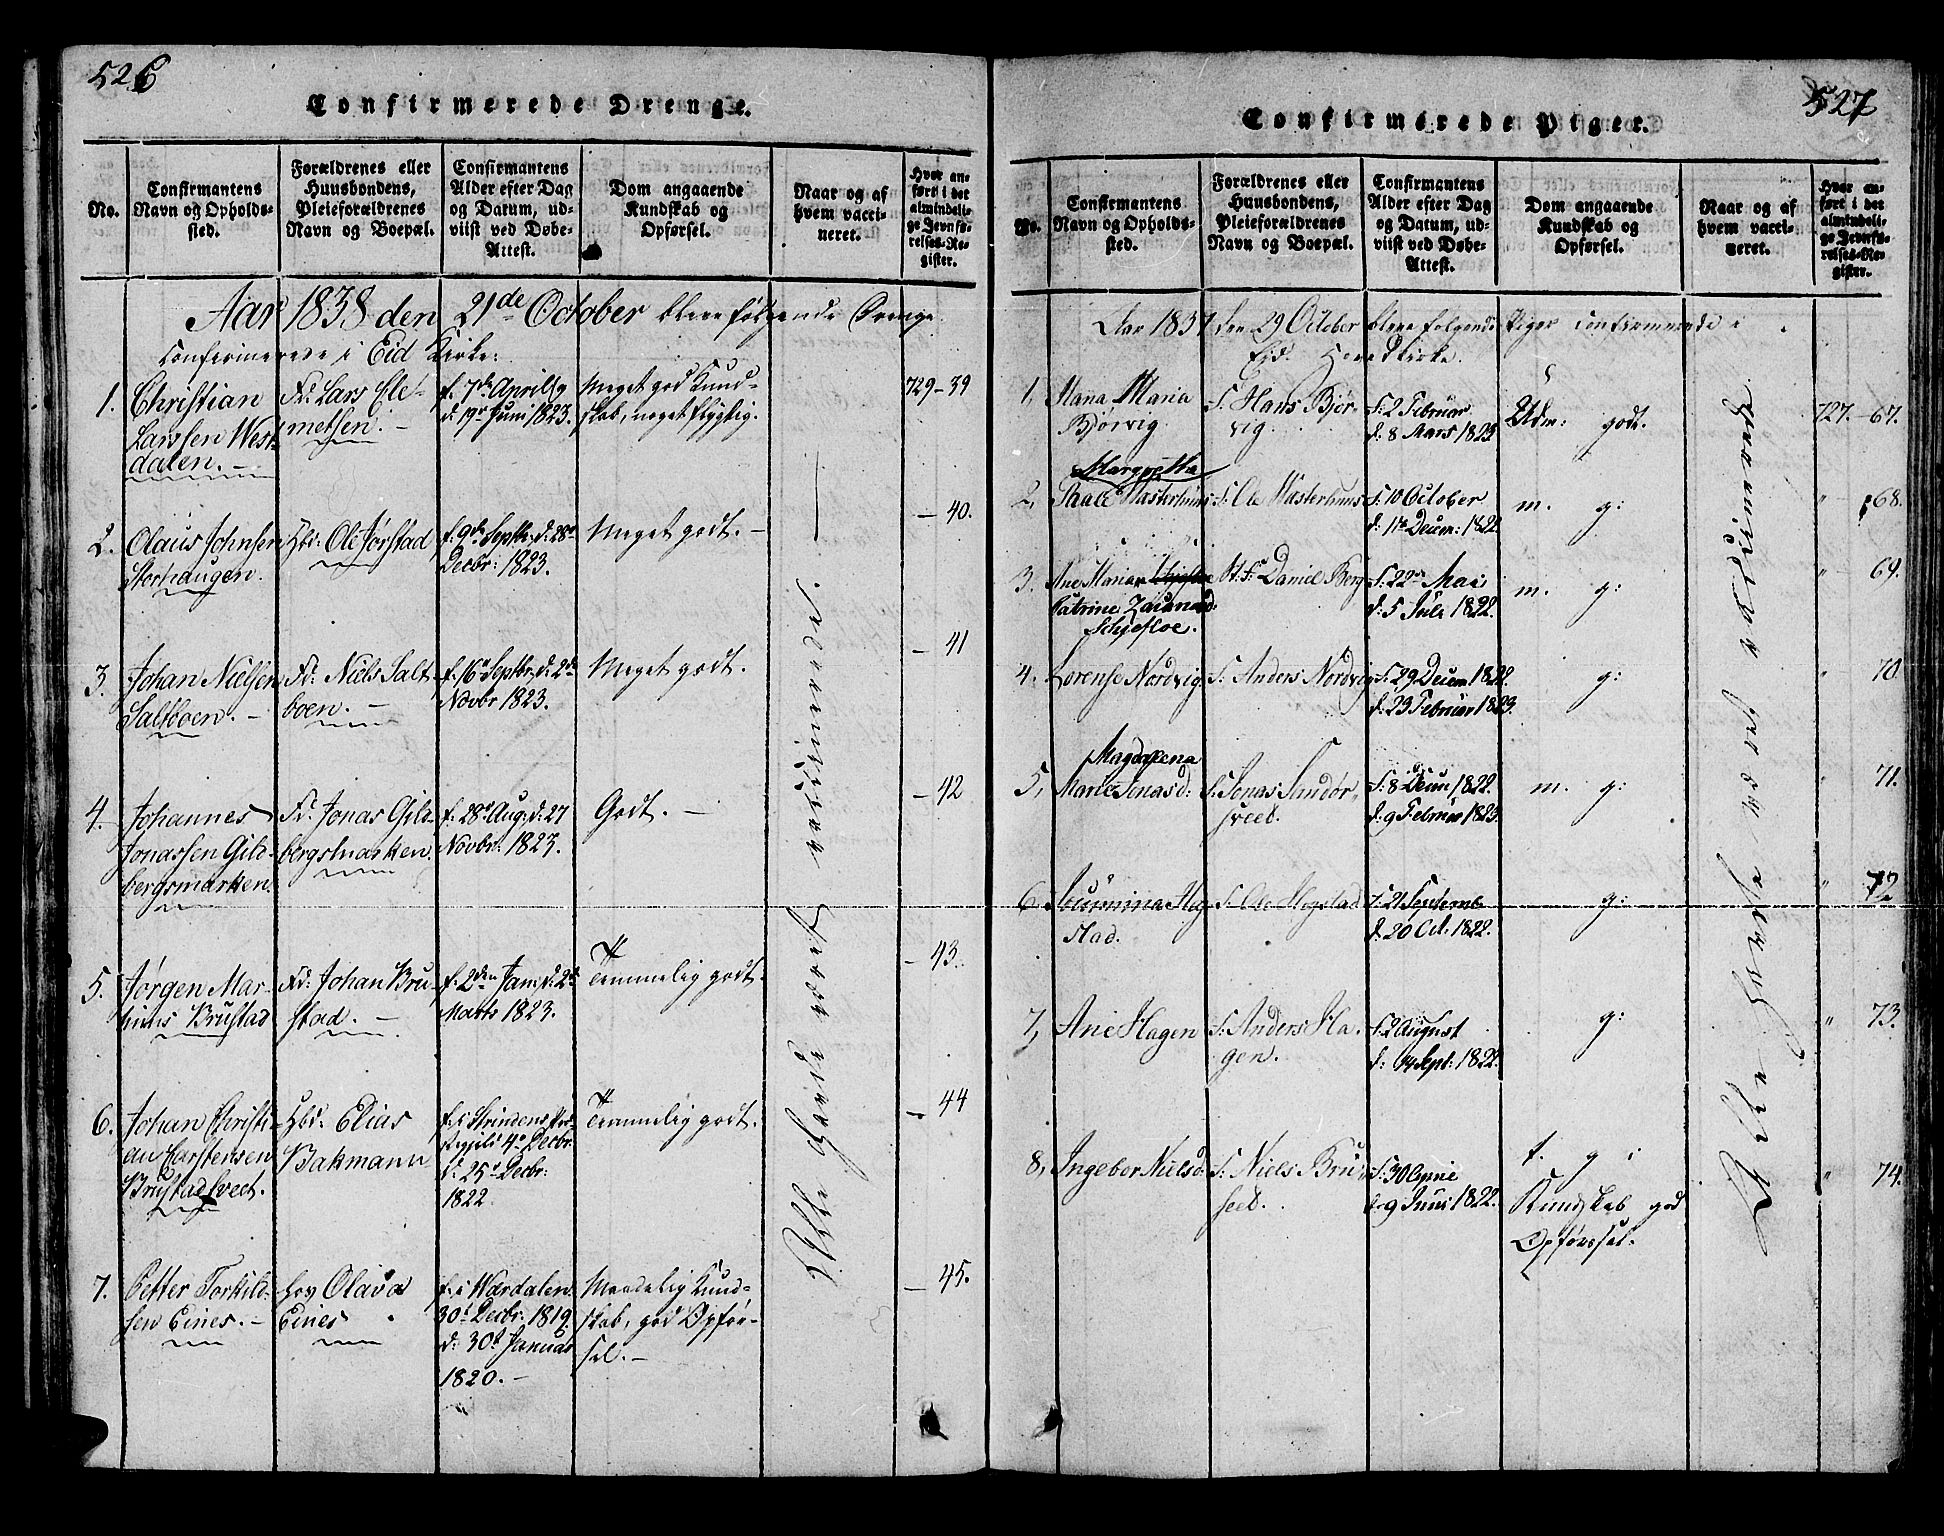 526
Confirmerede Drenge.
No.
Confirmantens
Navn og Opholds-
sted.
Forældrenes eller
Huusbondens,
Pleieforældrenes
Navn og Boepæl.
Confirmantens
Alder efter Dag
og Datum, ud-
viist ved Døbe-
Attest.
Dom angaaende
Kundskab og
Opførsel.
Naar og af
hvem vacci-
neret.
Hvor an-
ført i det
almindeli-
ge Jevnfø-
relses-Re-
gister.
Aar 1838 den 21de October bleve følgende Drenge
confirmerede i Eid Kirke:
1. Christian
Larssen West-
dalen.
Fd: Lars Cle-
metsen.
f. 7de April
d. 19 Juni 1823.
Meget god Kund-
skab, noget flygtig.
729-39
2. Olaus Johnsen
Storhaugen.
Hbd: Ole Jørstad
f. 9de Septbr: d. 28de
Decbr: 1823.
Meget godt.
- 40.
3. Johan Nielsen
Saltboen.
Fd: Niels Salt-
boen.
f. 16de Septbr. d. 2den
Novbr 1823.
Meget godt.
- 41
4. Johannes
Jonassen Gild-
bergsmarken.
Fd: Jonas Gild-
bergsmarken.
f. 28de Aug: d. 27
Novbr: 1823.
Godt.
- 42
5. Jørgen Mar-
Brustad
Fd: Johan Bru-
stad.
f. 2den Jan: d. 2den
Marts 1823.
Temmelig godt.
- 43.
6. Johan Christi-
an Carstensen
Brustadsveet.
Hbd: Elias
Bakmann
f. i Strindens
4de Decbr.
d. 25de Decbr:
1822.
Temmelig godt.
- 44
7. Petter Torkild-
sen Eines.
Olava
Eines
f. i Wærdalen
30de Decbr: 1819.
d. 30te Januar
1820.
Maadelig Kund-
skab, god Opfør-
sel.
- 45.
Alle have været vaccinerede.
527
Confirmerede Piger.
No.
Confirmantens
Navn og Opholds-
sted.
Forældrenes eller
Huusbondens,
Pleieforældrenes
Navn og Boepæl.
Confirmantens
Alder efter Dag
og Datum, ud-
viist ved Døbe-
Attest.
Dom angaaende
Kundskab og
Opførsel.
Naar og af
hvem vacci-
neret.
Hvor an-
ført i det
almindeli-
ge Jevnfø-
relses-Re-
gister.
Aar 1837 den 29 October bleve følgende Piger confirmerede i
Eids Hovedkirke.
1. Hana Maria
Bjørvig
F. Hans Bjør-
vig
F: 2 Februar
d: 8 Mars 1823
Udm: godt.
727. 67.
2,
Margretha
F. Ole
F: 10 October
d: 11te Decem: 1822
m. g:
" 68.
3. Ane Maria
Catrine
Schjefloe.
Daniel Berg
F: 22de Mai
d: 5 Juli 1822.
m. g:
" 69.
4. Lorense Nordvig
F. Anders Nordvig
F: 29 Decem 1822
d: 23 Februar 1823.
g:
" 70
5,
Magdalena
Marie Jonasd:
F. Jonas
F: 8 Decem 1822.
d: 9 Februar 1823.
m. g:
" 71.
6.
stad.
F. Ole
F. 21 Septemb
d. 20 Oct. 1822.
g:
" 72
7, Ane Hagen
F: Anders Ha-
gen.
F: 2 August
d: 14 Sept: 1822.
g:
" 73.
8, Ingebor Nielsd
F. Niels Bru-
seed.
F: 30
d. 9 Juni 1822.
t. g i
Kundskab god
Opførsel.
" 74.
Alle have været vaccinerede